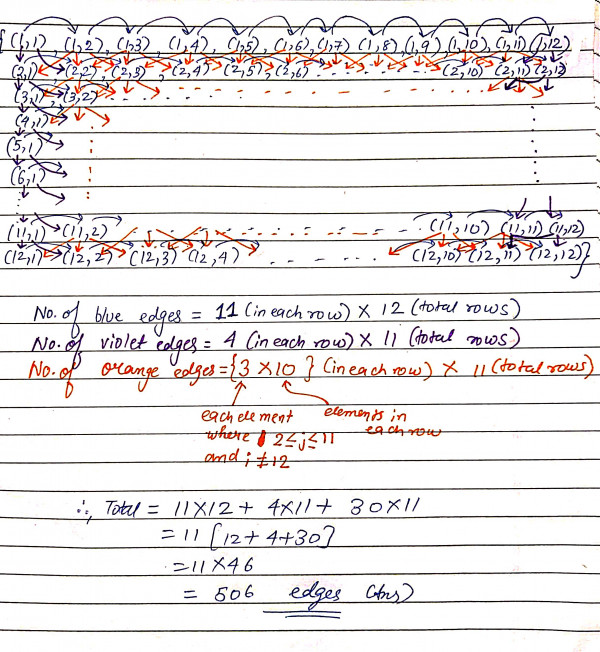 { (1,1), (1,2), (1,3), (1,4), (1,5), (1,6), (1,7), (1,8), (1,9), (1,10), (1,11) (1,12)
(2,1) (2,2), (2,3), (2,4), (2,5), (2,6), . . . . . . . (2,10) (2,11) (2,12)
(3,1), (3,2) . . . . . . .
(4,1)
(5,1)
(6,1)
(11,1) (11,2) . . . . . . . (11,10) (11,11) (11,12)
(12,1) (12,2) (12,3) (12,4) . . . . (12,10) (12,11) (12,12) }
No. of blue edges = 11 (in each row) × 12 (total rows)
No. of violet edges = 4 (in each row) × 11 (total rows)
No. of orange edges = {3 × 10} (in each row) × 11 (total rows)
each element elements in
where 2≤j≤11 each row
and i≠12
∴, Total = 11×12 + 4×11 + 30×11
= 11 [12+4+30]
= 11×46
= 506 edges (Ans)